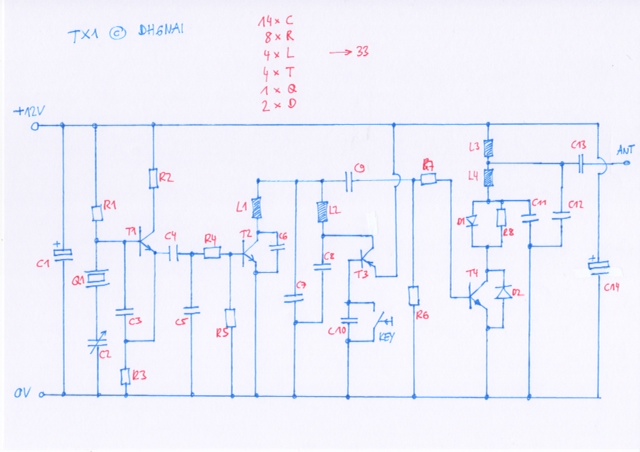 TX1 © DH6NAI
14 x C
8 x R
4 x L → 33
4 x T
1 x Q
2 x D
+12V
L3
C13
ANT
C9
R7
R2
L4
R1
L1
L2
D1
R8
C11
C12
T1
C4
R4
T2
C6
C1
Q1
C8
T3
T4
D2
C14
C7
C3
C5
R5
R6
C2
C10
KEY
R3
0V